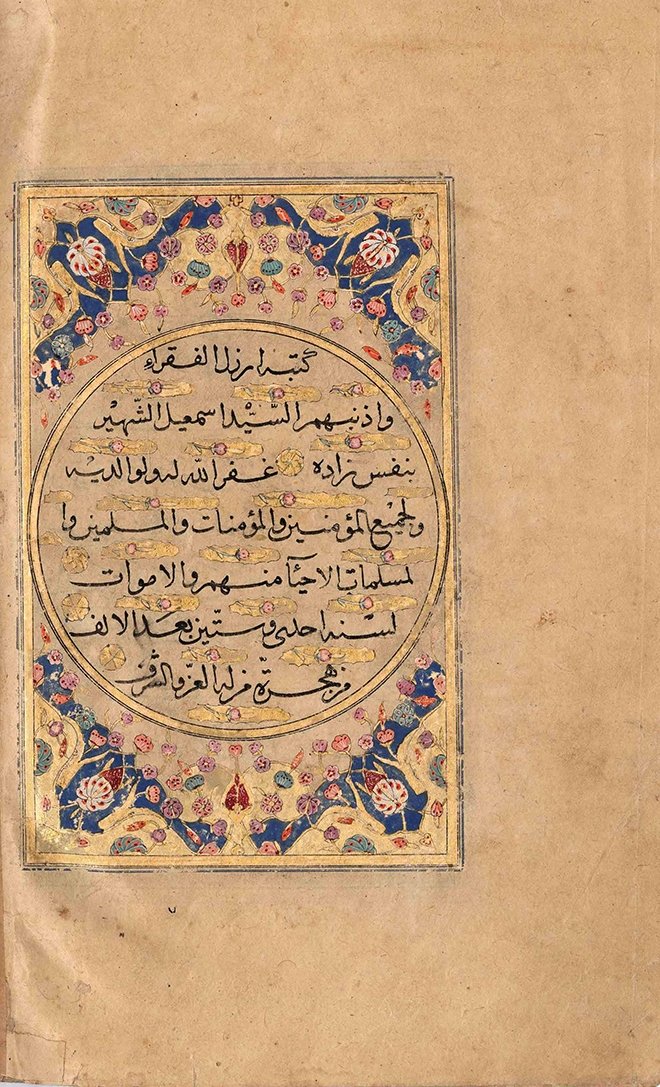 كتبه ارذل الفقراء
واذنبهم السيّد اسمعيل الشّهير
بنفس زاده غفر الله له ولوالديه
ولجميع المؤمنين والمؤمنات والمسلمين وا
لمسلمات الاحيآء منهم والاموات
لسنة احدى وستّين بعد الالف
من هجرة من له العزّ والشرف